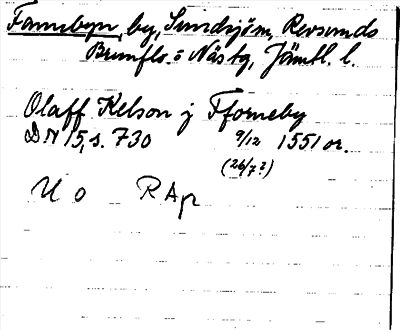 Fannbyn, by, Sundsjöm, Revsunds
Brunflo o Näs tg, Jämtl. l.
Olaff Kelson j Fforneby
DN 15, s. 730 9/12 1551 or.
(26/7?)
U o R Ap